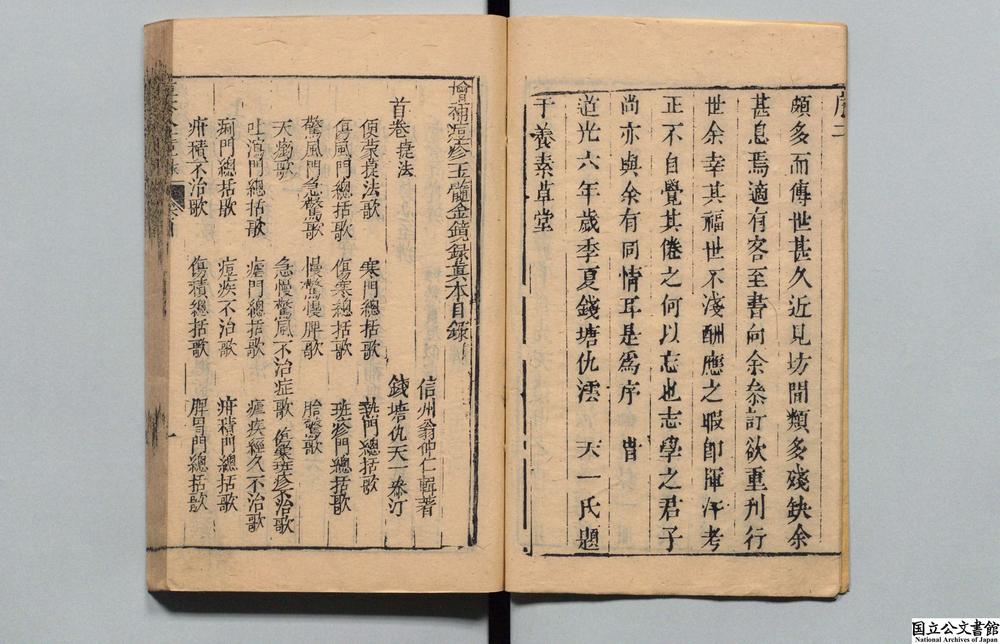 序二
頗多而傳世甚久近見坊間類多殘缺余
甚息焉適有客至書向余叅訂欲重刊行
世余幸其福世不淺酬應之暇即揮汗考
正不自覺其倦之何以忘也志學之君子
尚亦與余有同情耳是爲序 旹
道光六年歲季夏錢塘仇澐 天一氏題
于養素草堂
增補痘疹玉髓金鏡錄眞本目錄
信州翁仲仁輯著
首卷㨗法
錢塘仇天一叅訂
便蒙㨗法歌 寒門總括歌 熱門總括歌
傷風門總括歌 傷寒總括歌 班疹門總括歌
驚風門急驚歌 慢驚慢脾歌 胎驚歌
天癇歌 急慢驚風不治症歌 傷寒班疹不治歌
吐瀉門總括歌 瘧門總括歌 瘧疾經久不治歌
痢門總括歌 痘疾不治歌 疳積門總括歌
疳積不治歌 傷積總括歌 脾胃門總括歌
一
国立公文書館
National Archives of Japan